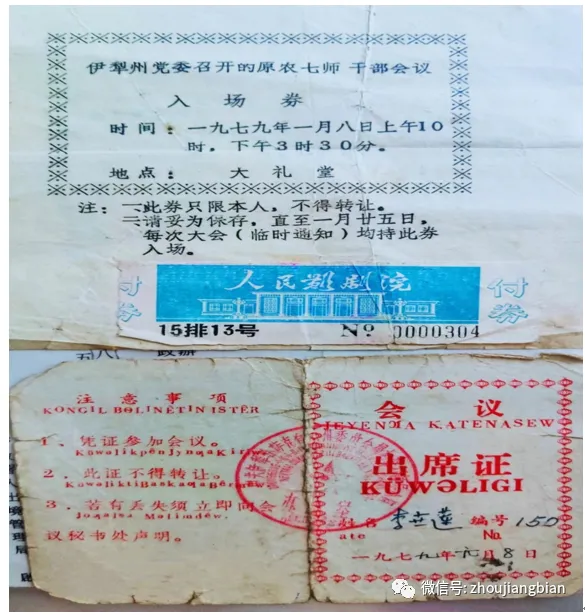 伊犁州党委召开的原农七师 干部会议
入 场 券
时 间：一九七九年一月八日上午10
时，下午3时30分。
地点： 大 礼 堂
注：一、此券只限本人，不得转让。
二、请妥为保存，直至一月廿五日，
每次大会（临时通知）均持此券
入场。
付券
人民影剧院
付券
15排13号 № 0000304
注 意 事 项
KONGIL BɵLINETIN ISTER
1．凭证参加会议。
2．此证不得转让。
3．若有丢失须立即向会
Joƣalsa Mәlimdew,
议秘书处声明。
会 议
JEYENJA KATENASEW
出席证
KÜWƏLIGI
姓名 李世莲 编号 150
ate №
一九七九年元月8日
微信号: zhoujiangbian